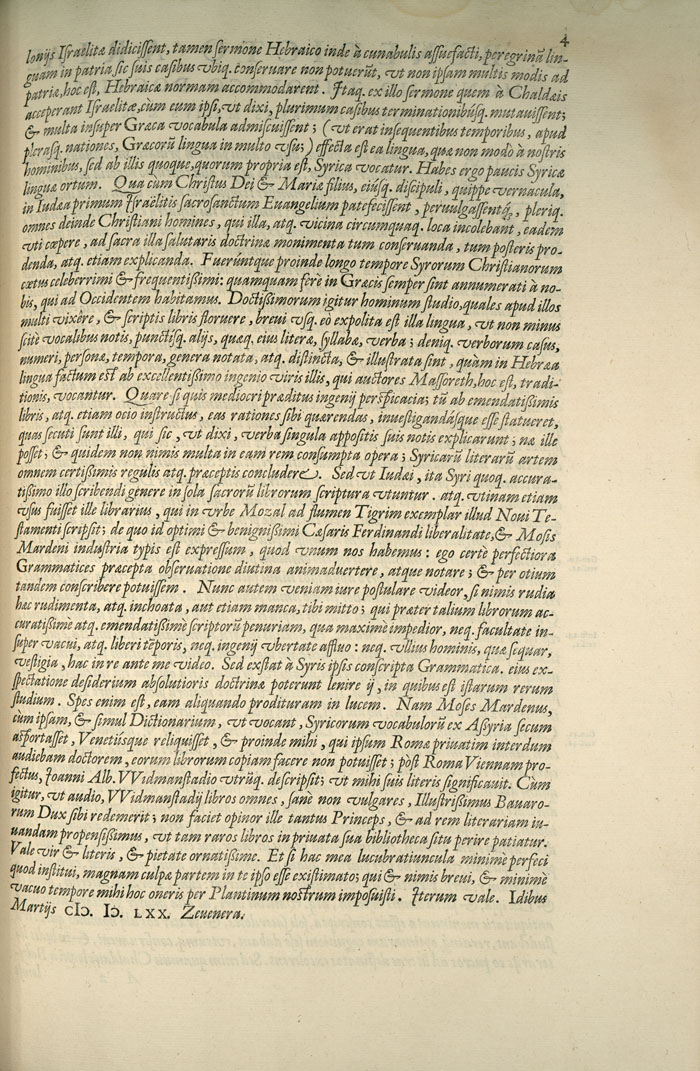 4
lonijs Israëlitæ didicissent, tamen sermone Hebraico inde à cunabulis assuefacti, peregrinã lin-
guam in patria sic suis casibus vbiq. conseruare non potuerũt, vt non ipsam multis modis ad
patriæ, hoc est, Hebraicæ normam accommodarent. Itaq. ex illo sermone quem à Chaldæis
acceperant Israelitæ, cùm eum ipsi, vt dixi, plurimum casibus terminationibúsq. mutauissent;
& multa insuper Græca vocabula admiscuissent; (vt erat insequentibus temporibus, apud
plerasq. nationes, Græcorũ lingua in multo vsu;) effecta est ea lingua, quæ non modò à nostris
hominibus, sed ab illis quoque, quorum propria est, Syrica vocatur. Habes ergo paucis Syricæ
linguæ ortum. Qua cum Christus Dei & Mariæ filius, eiúsq. discipuli, quippe vernacula,
in Iudæa primum Israëlitis sacrosanctum Euangelium patefecissent, peruulgassentq́, pleriq.
omnes deinde Christiani homines, qui illa, atq. vicina circumquaq. loca incolebant, eadem
vti cœpere, ad sacra illa salutaris doctrinæ monimenta tum conseruanda, tum posteris pro-
denda, atq. etiam explicanda. Fuerúntque proinde longo tempore Syrorum Christianorum
cœtus celeberrimi & frequentissimi: quamquam ferè in Græcis semper sint annumerati à no-
bis, qui ad Occidentem habitamus. Doctissimorum igitur hominum studio, quales apud illos
multi vixêre, & scriptis libris floruere, breui vsq. eò expolita est illa lingua, vt non minus
scitè vocalibus notis, punctísq. alijs, quæq. eius literæ, syllabæ, verba; deniq. verborum casus,
numeri, personæ, tempora, genera notata, atq. distincta, & illustrata sint, quàm in Hebræa
lingua factum est ab excellentissimo ingenio viris illis, qui auctores Massoreth, hoc est, tradi-
tionis, vocantur. Quare si quis mediocri præditus ingenij perspicacia; tũ ab emendatissimis
libris, atq. etiam ocio instructus, eas rationes sibi quærendas, inuestigandásque esse statueret,
quas secuti sunt illi, qui sic, vt dixi, verba singula appositis suis notis explicarunt; næ ille
posset; & quidem non nimis multa in eam rem consumpta opera; Syricarũ literarũ artem
omnem certissimis regulis atq. præceptis concludere. Sed vt Iudæi, ita Syri quoq. accura-
tissimo illo scribendi genere in sola sacrorũ librorum scriptura vtuntur. atq. vtinam etiam
vsus fuisset ille librarius, qui in vrbe Mozal ad flumen Tigrim exemplar illud Noui Te-
stamenti scripsit; de quo id optimi & benignissimi Cæsaris Ferdinandi liberalitate, & Mosis
Mardeni industria typis est expressum, quod vnum nos habemus: ego certè perfectiora
Grammatices præcepta obseruatione diutina animaduertere, atque notare; & per otium
tandem conscribere potuissem. Nunc autem veniam iure postulare videor, si nimis rudia
hæc rudimenta, atq. inchoata, aut etiam manca, tibi mitto; qui præter talium librorum ac-
curatissimè atq. emendatissimè scriptorũ penuriam, qua maximè impedior, neq. facultate in-
super vacui, atq. liberi tẽporis, neq. ingenij vbertate affluo: neq. vllius hominis, quæ sequar,
vestigia, hac in re ante me video. Sed exstat à Syris ipsis conscripta Grammatica. eius ex-
spectatione desiderium absolutioris doctrinæ poterunt lenire ij, in quibus est istarum rerum
studium. Spes enim est, eam aliquando prodituram in lucem. Nam Moses Mardenus,
cùm ipsam, & simul Dictionarium, vt vocant, Syricorum vocabulorũ ex Assyria secum
asportasset, Venetiísque reliquisset, & proinde mihi, qui ipsum Romæ priuatim interdum
audiebam doctorem, eorum librorum copiam facere non potuisset; pòst Roma Viennam pro-
fectus, Ioanni Alb. VVidmanstadio vtrũq. descripsit; vt mihi suis literis significauit. Cùm
igitur, vt audio, VVidmanstadij libros omnes, sanè non vulgares, Illustrissimus Bauaro-
rum Dux sibi redemerit; non faciet opinor ille tantus Princeps, & ad rem literariam iu-
uandam propensissimus, vt tam raros libros in priuata sua bibliotheca situ perire patiatur.
Vale vir & literis, & pietate ornatissime. Et si hac mea lucubratiuncula minimè perfeci
quod institui, magnam culpæ partem in te ipso esse existimato; qui & nimis breui, & minimè
vacuo tempore mihi hoc oneris per Plantinum nostrum imposuisti. Iterum vale. Idibus
Martijs CIↃ. IↃ. LXX. Zeuenera.